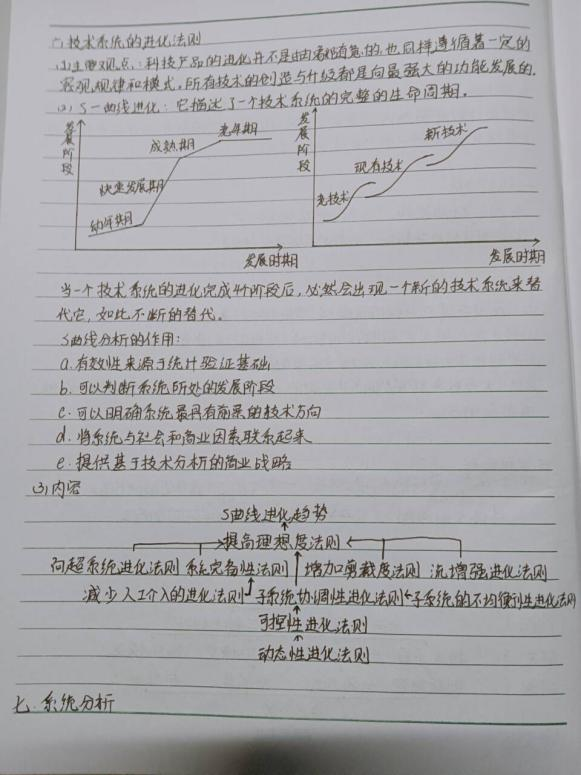 六.技术系统的进化法则
(1)主要观点:科技产品的进化并不是由着随意的,也同样遵循着一定的
客观规律和模式。所有技术的创造与升级都是向最强大的功能发展的.
(2) S-曲线进化:它描述了一个技术系统的完整的生命周期。
发展阶段
老年期
成熟期
快速发展期
幼年期
发展时期
发展阶段
新技术
现有技术
老技术
发展时期
当一个技术系统的进化完成4个阶段后,必然会出现一个新的技术系统来替
代它,如此不断的替代。
S曲线分析的作用:
a.有效性来源于统计验证基础
b.可以判断系统所处的发展阶段
c.可以明确系统最具有前景的技术方向
d.将系统与社会和商业因素联系起来
e.提供基于技术分析的商业战略
(3)内容
S曲线进化趋势
提高理想度法则
向超系统进化法则 系统完备性法则 增加剪裁度法则 流增强进化法则
减少人工介入的进化法则 子系统协调性进化法则 子系统的不均衡性进化法则
可控性进化法则
动态性进化法则
七.系统分析